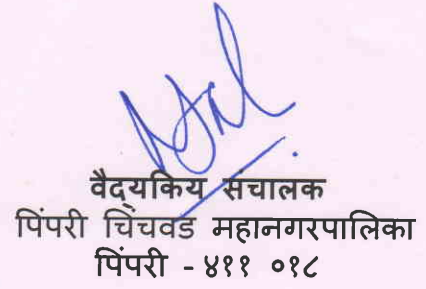 वैद्यकिय संचालक
पिंपरी चिंचवड महानगरपालिका
पिंपरी - ४११ ०१८